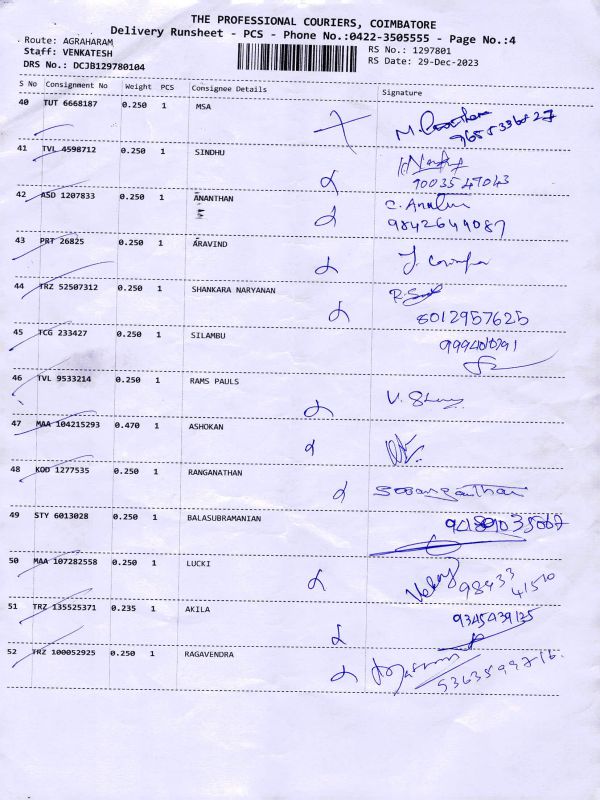 THE PROFESSIONAL COURIERS, COIMBATORE
Delivery Runsheet - PCS - Phone No.:0422-3505555 - Page No.:4
Route: AGRAHARAM
RS No.: 1297801
Staff: VENKATESH
RS Date: 29-Dec-2023
DRS No.: DCJB129780104
S No Consignment No Weight PCS Consignee Details Signature
40 TUT 6668187 0.250 1 MSA
41 TVL 4598712 0.250 1 SINDHU
42 ASD 1207833 0.250 1 ANANTHAN
9842644087
43 PRT 26825 0.250 1 ARAVIND
44 TRZ 52507312 0.250 1 SHANKARA NARYANAN
8012957625
45 TCG 233427 0.250 1 SILAMBU
46 TVL 9533214 0.250 1 RAMS PAULS
47 MAA 104215293 0.470 1 ASHOKAN
48 KOD 1277535 0.250 1 RANGANATHAN
49 STY 6013028 0.250 1 BALASUBRAMANIAN
50 MAA 107282558 0.250 1 LUCKI
51 TRZ 135525371 0.235 1 AKILA
52 TRZ 100052925 0.250 1 RAGAVENDRA